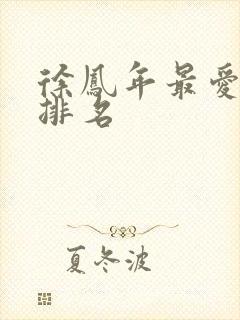 徐鳳年最愛
排名
夏冬波